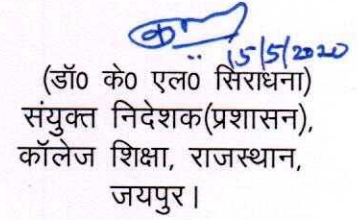 15/5/2020
(डॉ0 के0 एल0 सिराधना)
संयुक्त निदेशक(प्रशासन),
कॉलेज शिक्षा, राजस्थान,
जयपुर।